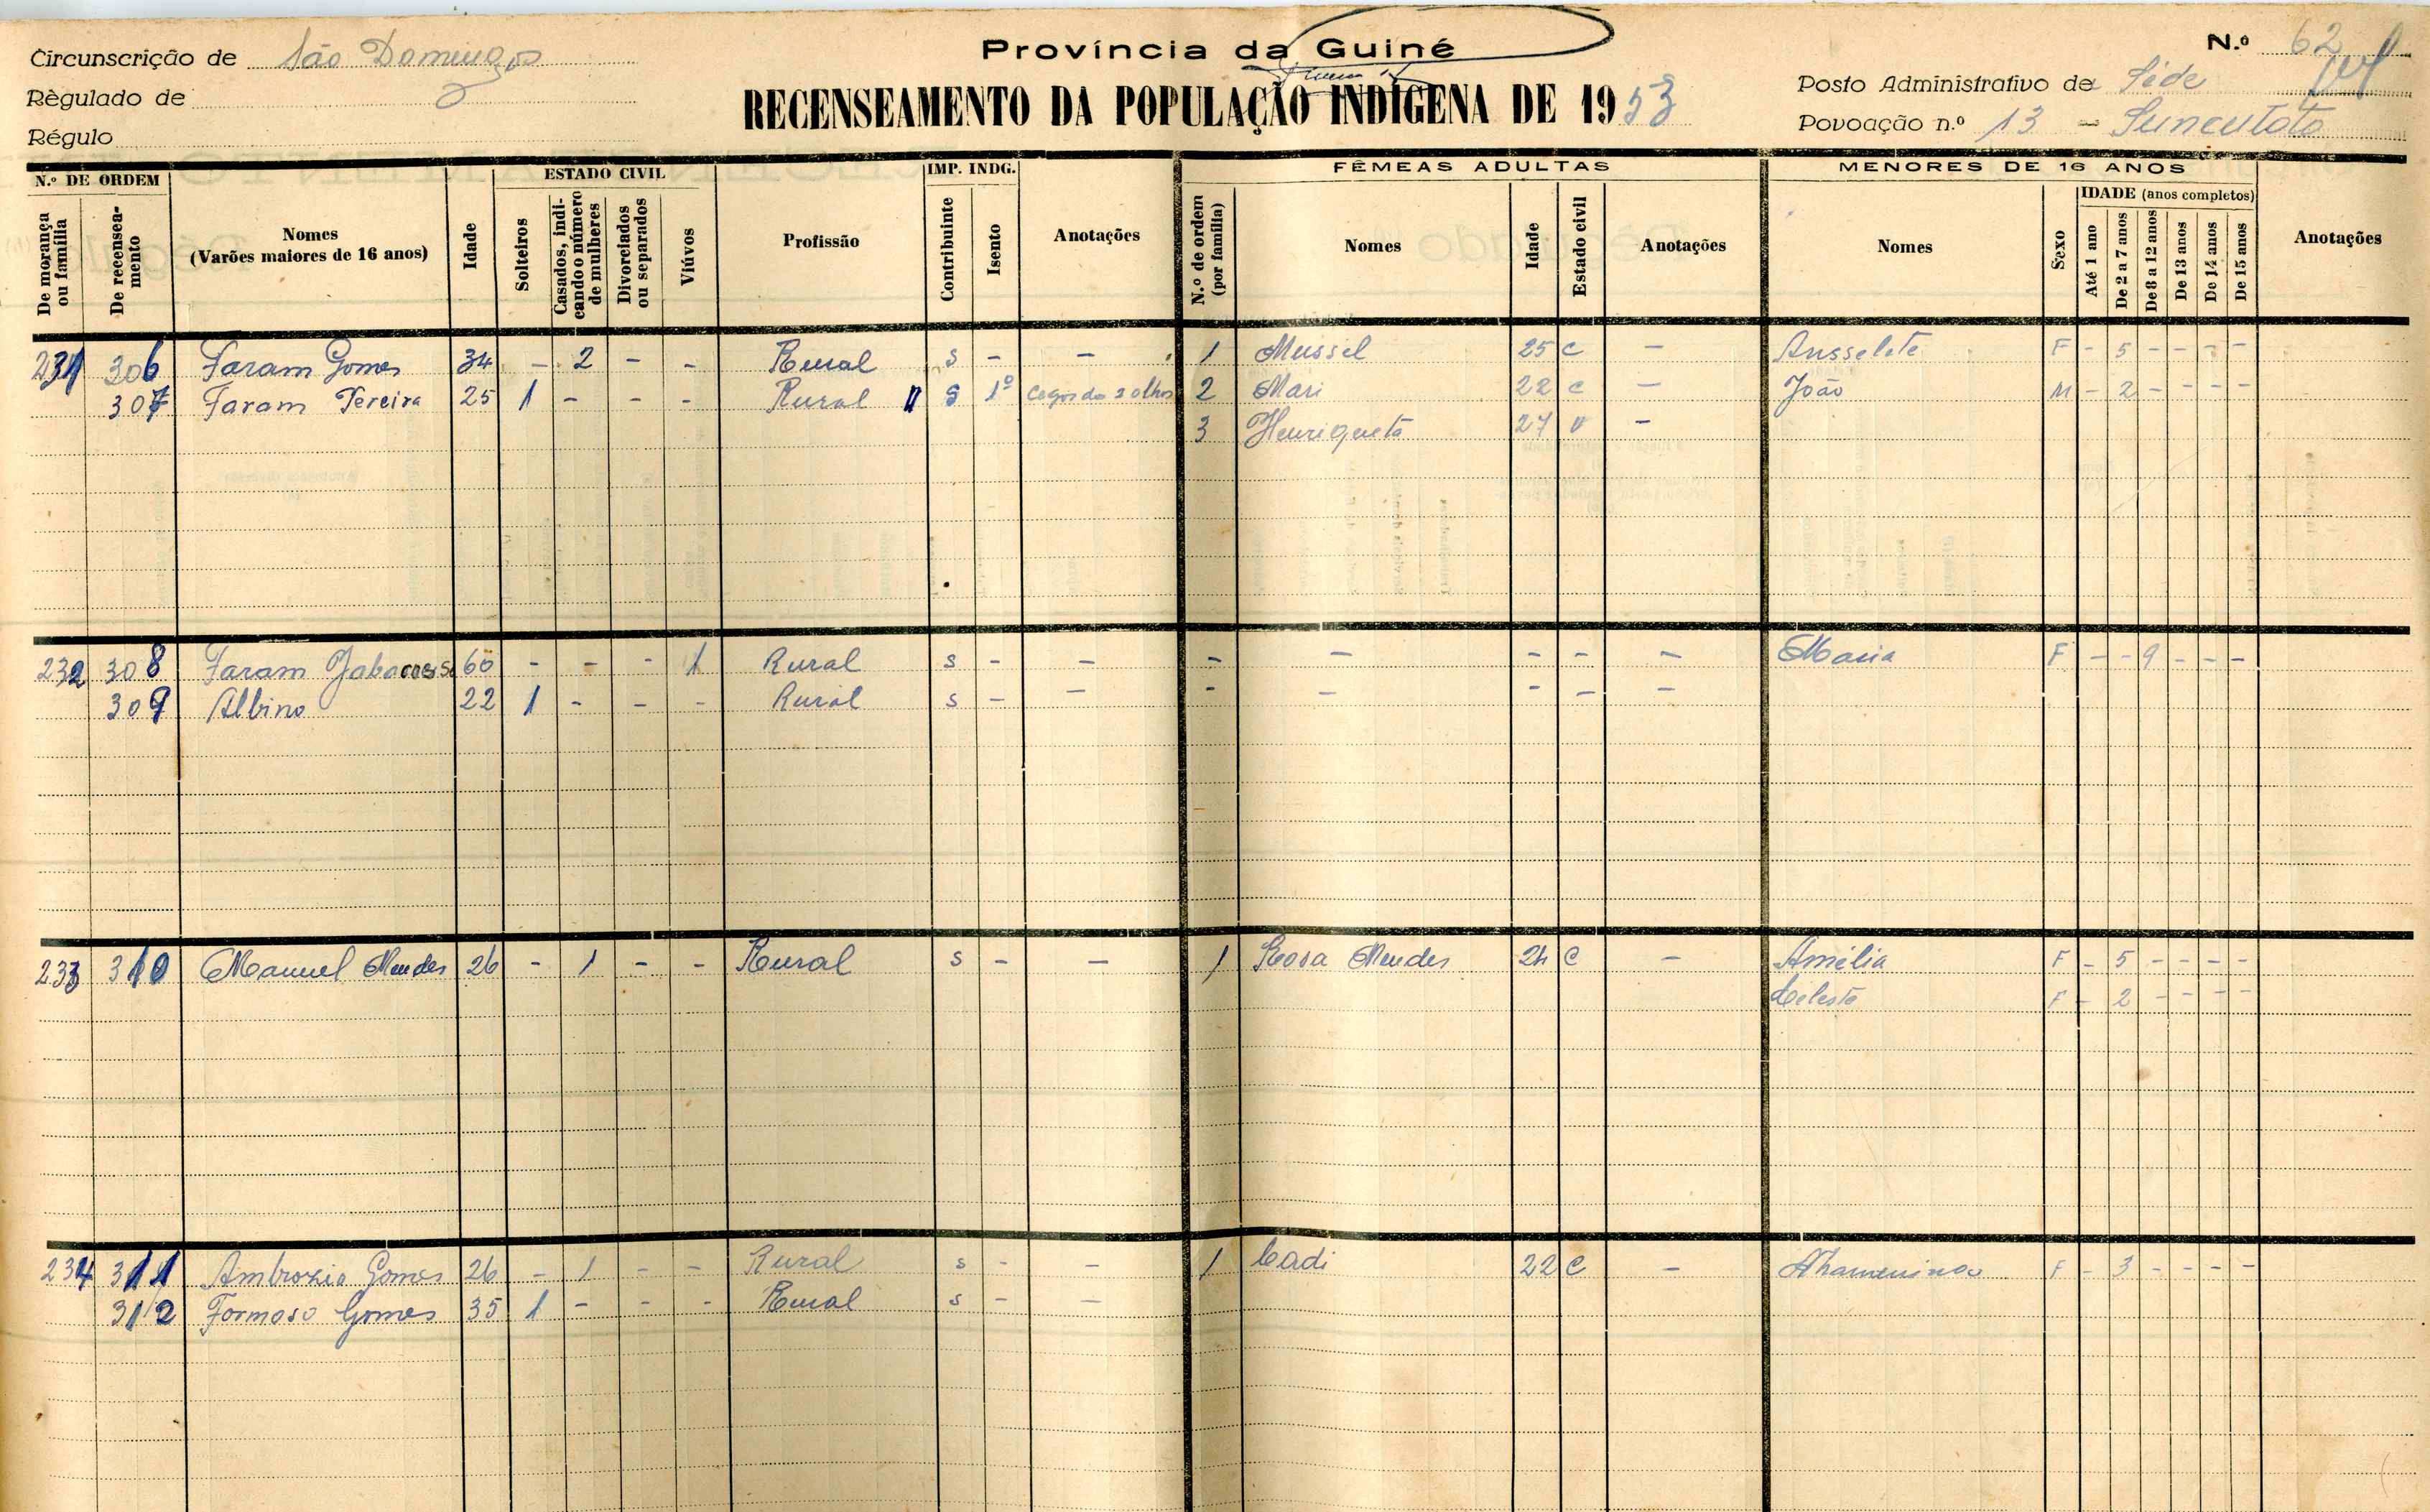 Província da Guiné
N.º 62
Circunscrição de São Domingos
Règulado de
Régulo
RECENSEAMENTO DA POPULAÇÃO INDÍGENA DE 1953
Posto Administrativo de Séde
Povoação n.º 13 - Suncutoto
N.º DE ORDEM
De morança ou família
De recenseamento
Nomes
(Varões maiores de 16 anos)
Idade
ESTADO CIVIL
Solteiros
Casados, indicando o número de mulheres
Divorciados ou separados
Viúvos
Profissão
IMP. INDG.
Contribuinte
Isento
Anotações
FÊMEAS ADULTAS
N.º de ordem (por família)
Nomes
Idade
Estado civil
Anotações
MENORES DE 16 ANOS
Nomes
Sexo
IDADE (anos completos)
Até 1 ano
De 2 a 7 anos
De 8 a 12 anos
De 13 anos
De 14 anos
De 15 anos
Anotações
231 306 Faram Gomes 34 - 2 - - Rural S - - 1 Mussel 25 C - Ausselete F - 5 - - - -
307 Faram Pereira 25 1 - - - Rural S 1º Cegos do 2 olhos 2 Mari 22 C - João M - 2 - - - -
3 Henriqueta 27 V -
232 308 Faram 60 - - - 1 Rural S - - - - - - - Maria F - - 9 - - -
309 Albino 22 1 - - - Rural S - - - - - - -
233 310 Manuel Mendes 26 - 1 - - Rural S - - 1 Rosa Mendes 24 C - Amélia F - 5 - - - -
Celeste F - 2 - - - -
234 311 Ambrozio Gomes 26 - 1 - - Rural S - - 1 Cadi 22 C - F - 3 - - - -
312 Formoso Gomes 35 1 - - - Rural S - -